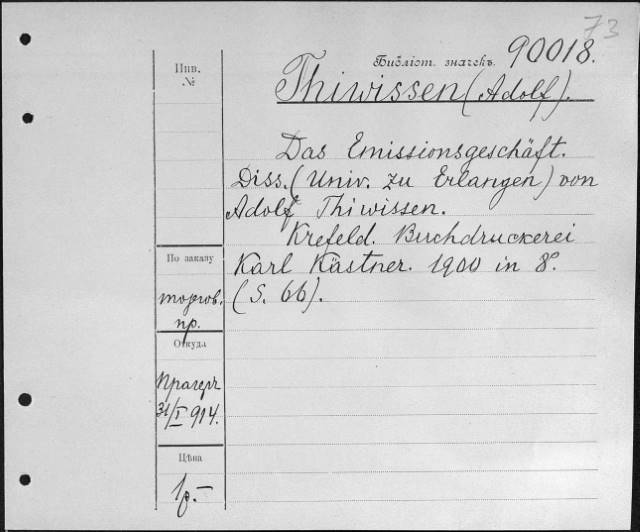 73
Библіот. значекъ. 90018.
Инв.
№
Thiwissen (Adolf).
Das Emissionsgeschäft.
Diss. (Univ. zu Erlangen) von
Adolf Thiwissen.
Krefeld. Buchdruckerei
По заказу
Karl Kästner. 1900 in 8º.
торгов.
(S. 66).
пр.
Откуда
Прагеръ
31/I 914.
Цѣна
1р.–